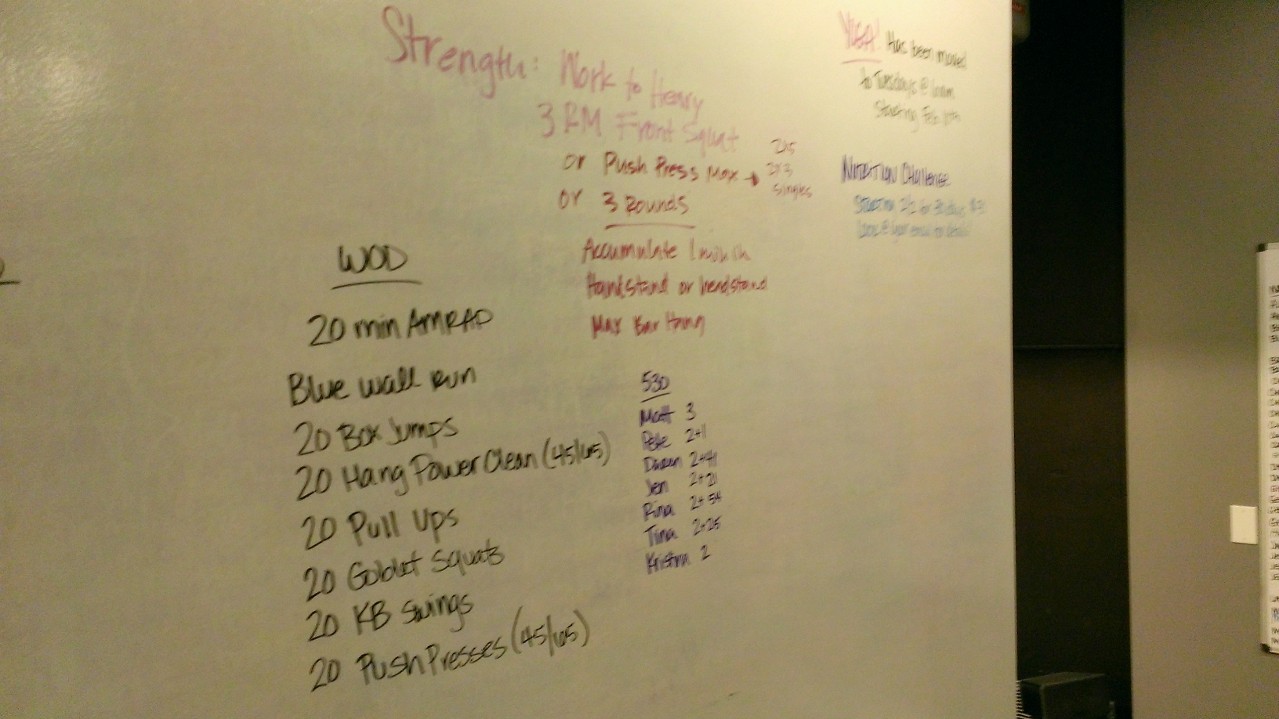 Strength: Work to Heavy
3 RM Front Squat
or Push Press Max → 2x5
2x3
singles
or 3 Rounds
Accumulate 1 min in
Handstand or headstand
Max Bar Hang
WOD
20 min AMRAP
Blue wall run
20 Box Jumps
20 Hang Power Clean (45/65)
20 Pull Ups
20 Goblet Squats
20 KB Swings
20 Push Presses (45/65)
530
Matt 3
Pete 2+1
Daren 2+41
Jen 2+21
Rina 2+54
Tina 2+25
Kristina 2
YOGA! Has been moved
to Tuesdays @
Starting Feb 10th
Nutrition Challenge
Starting 2/2 for 30 days